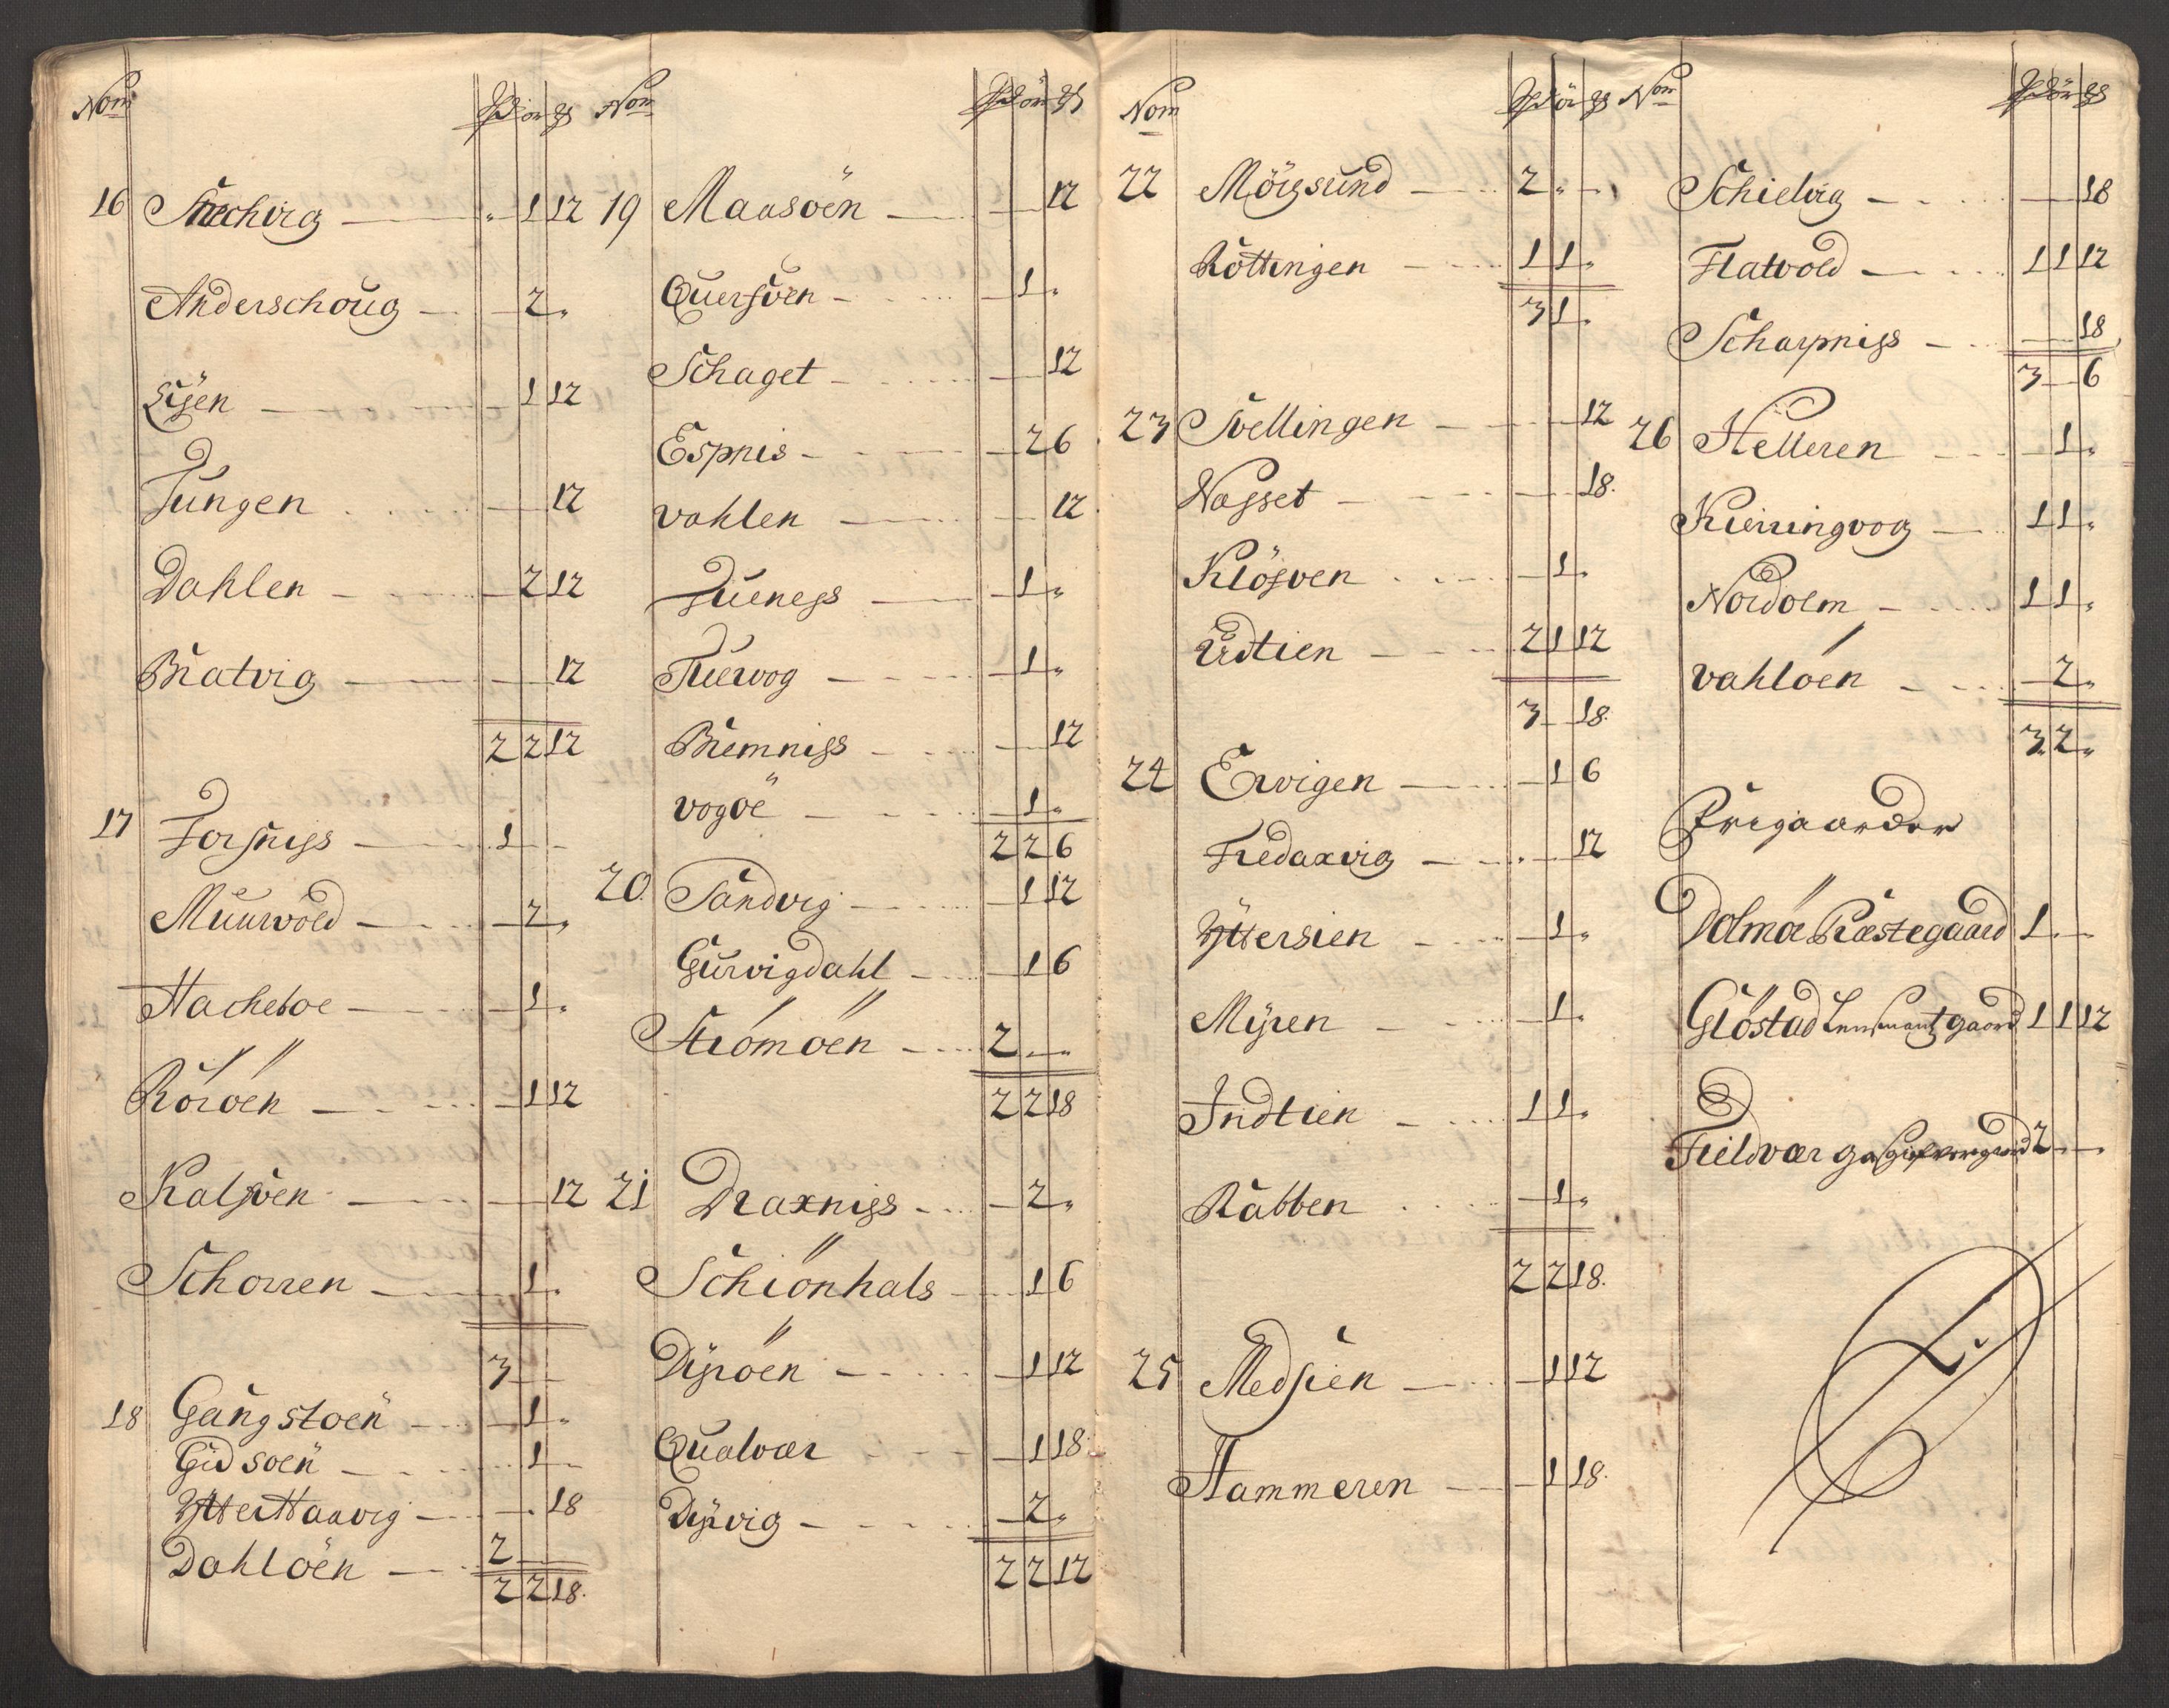 Nom
16 Strechvig — 1 12
Anderschoug — 2
1 12
Tungen 12
Dahlen 2 12
Bratvig 12
2 2 12
17 Forsniss 1
Muurvold 2
Hacheboe 1
Röröen 1 12
Kalsöen 12
Schorren 1
3
18 Gangstoen 1
Gidsoen 1
Ytter Haavig 18
Dahlöen 2
2 2 18
Nom
19 Maasöen 12
Quersöen 1
Schaget 12
Espnis 2 6
vahlen 12
Jueness 1
Tuervog 1
Bremniss 12
vogöe 1
2 2 6
20 Sandvig 1 12
Gurvigdahl 1 6
Strömöen 2
2 2 18
21 Draxniss 2
Schiönhals 1 6
Dyröen 1 12
Qualvær 1 18
Dyrvig 2
2 2 12
Nom
22 Mörgsund 2
Röttingen 1 1
3 1
23 Svellingen 12
Nasset 18
Klösven 1
Urdtien 2 1 12
3 18
24 Ervigen 1 6
Fredaxvig 12
Yttersien 1
Myren 1
Indtien 1 1
Rabben 1
2 2 18
25 Medsien 1 12
Hammeren 1 18
Nom
Schielvig 18
Flatvold 1 1 12
Scharpniss 18
3 6
26 Helleren 1
Kierringvog 1 1
Nordolm 1 1
vahlöen 2
3 2
Frigaarder
Dolmöe Præstegaard 1
Gröstad Lensmants gaard 1 1 12
Fieldvær 2